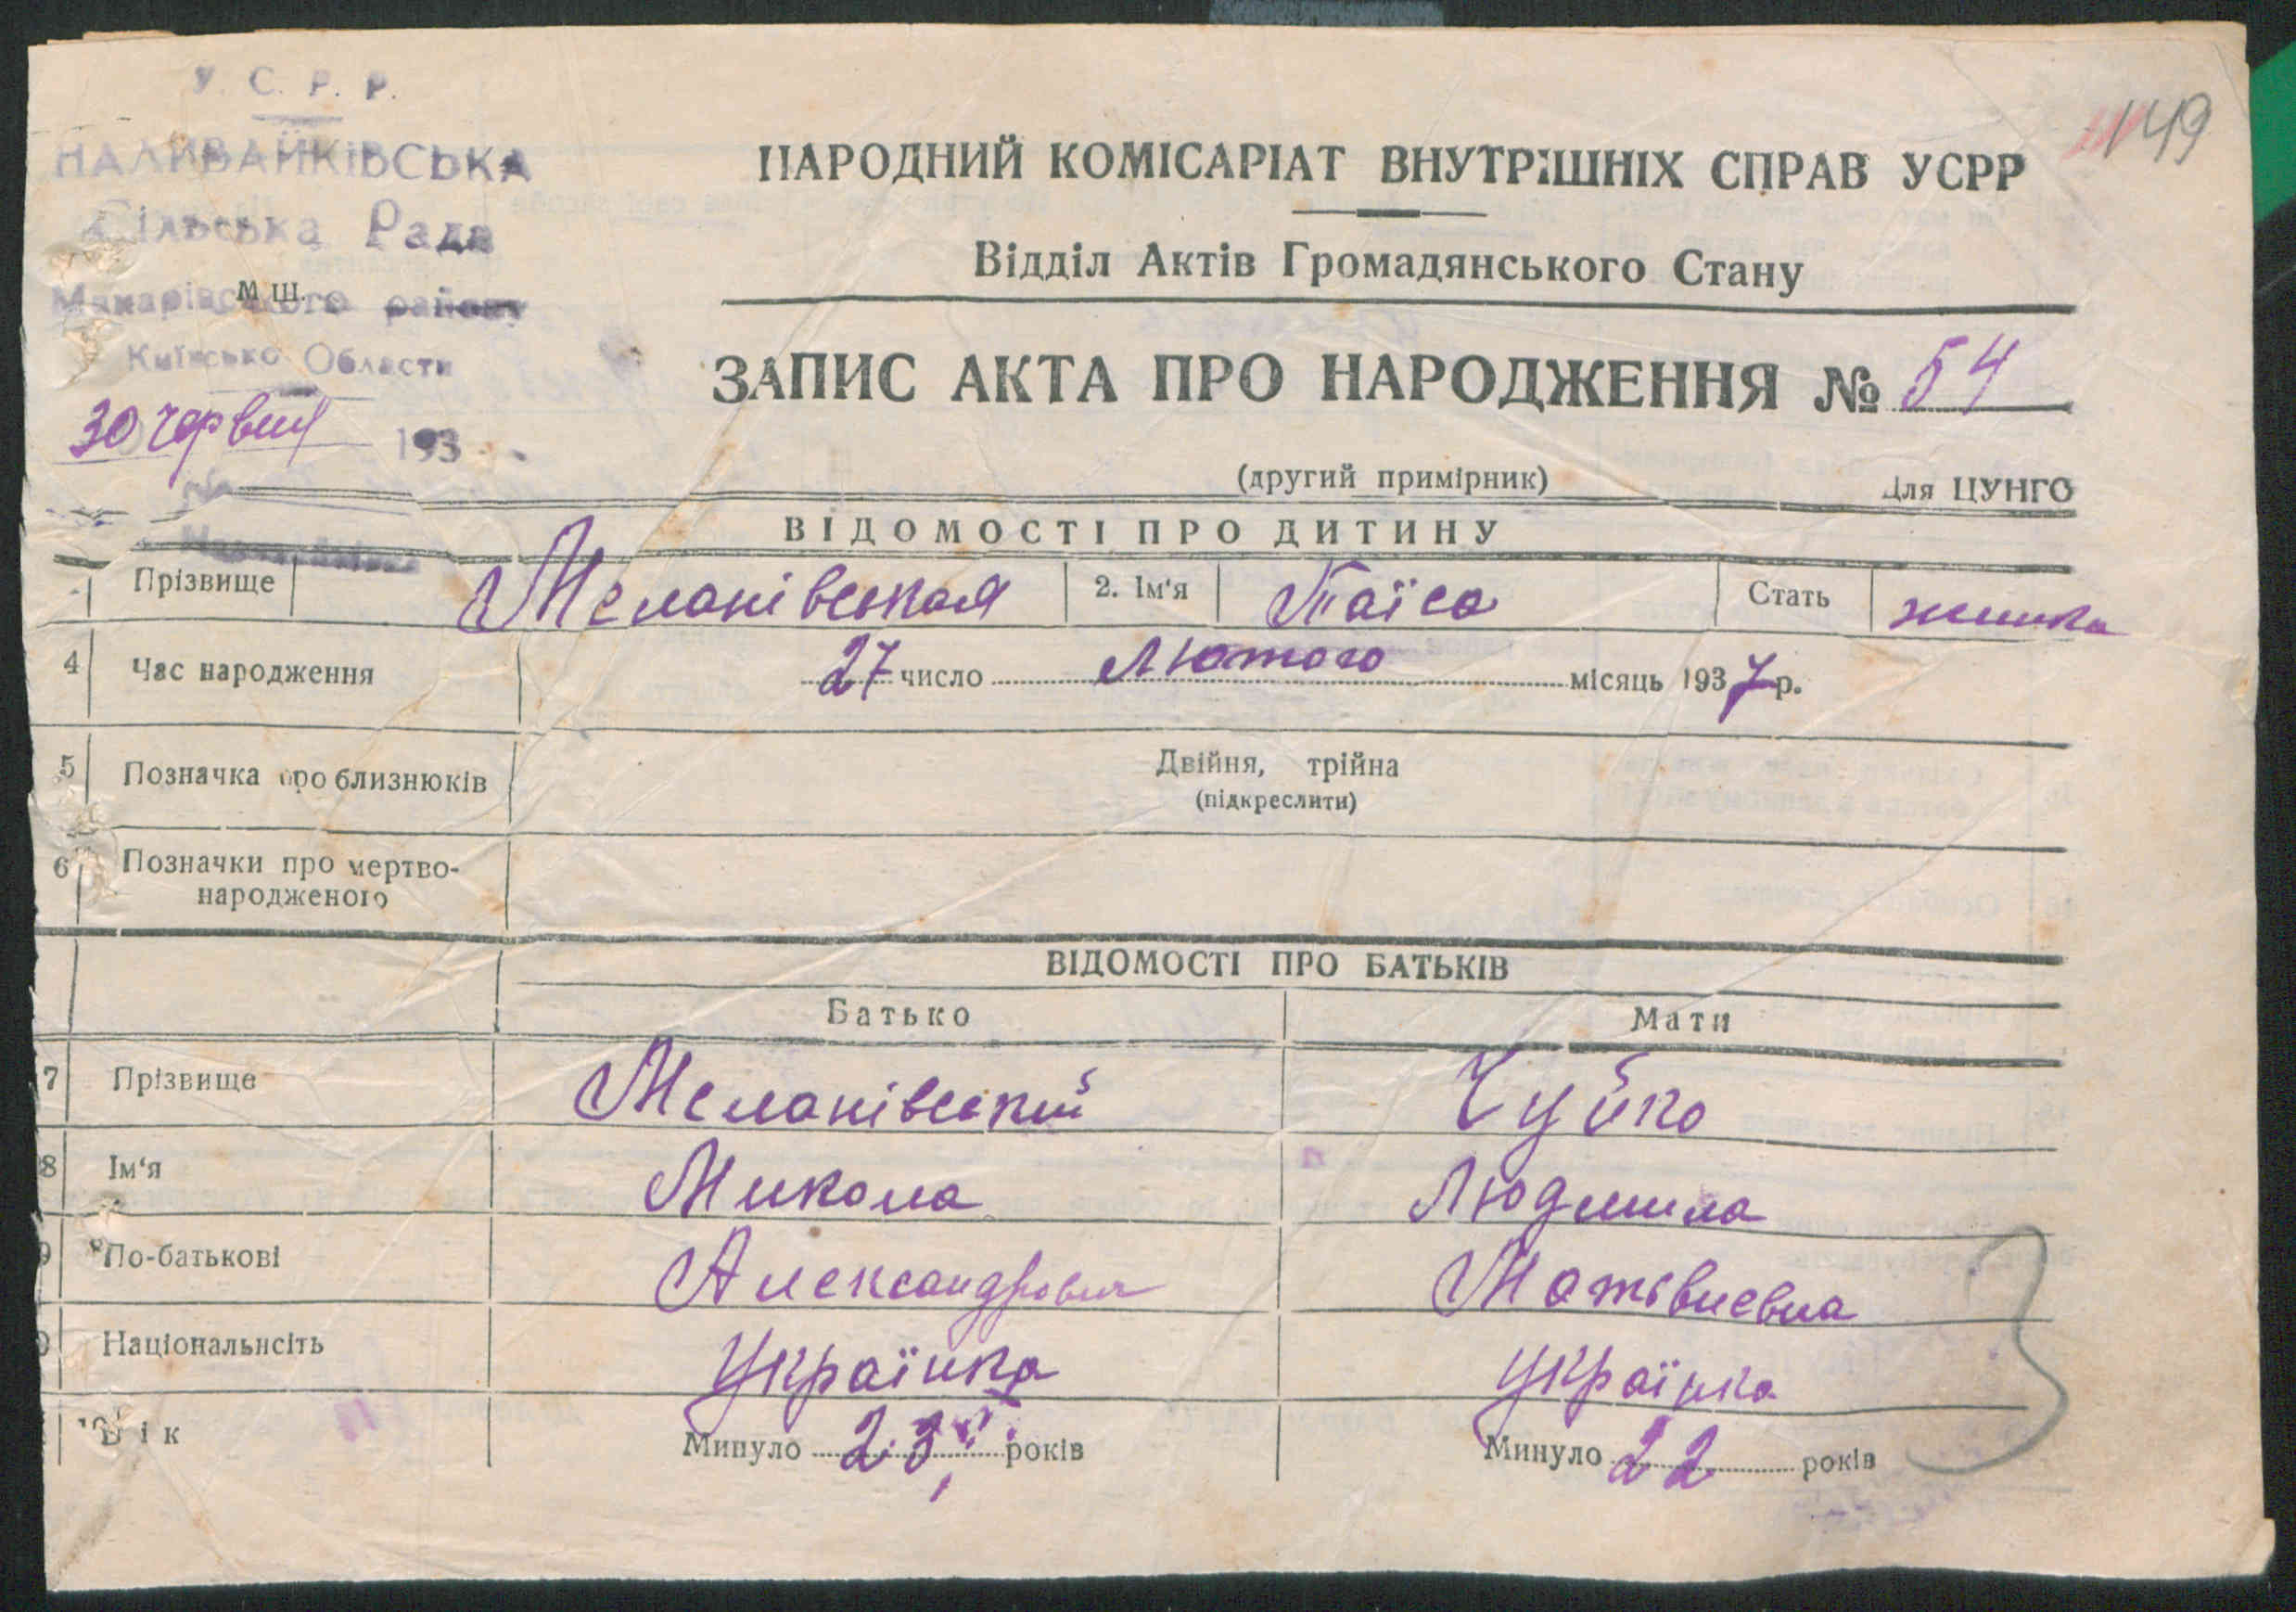 У. С. Р. Р.
НАЛИВАЙКІВСЬКА
Сільська Рада
М.Ш.
Макарівського району
Київсько Области
30 червня 193
149
НАРОДНИЙ КОМІСАРІАТ ВНУТРІШНІХ СПРАВ УСРР
Відділ Актів Громадянського Стану
ЗАПИС АКТА ПРО НАРОДЖЕННЯ № 54
(другий примірник) Для ЦУНГО
ВІДОМОСТІ ПРО ДИТИНУ
Прізвище Меланівская 2. Ім'я Таїса Стать жінка
4 Час народження 27 число Лютого місяць 1937 р.
5 Позначка про близнюків Двійня, трійна
(підкреслити)
6 Позначки про мертво-
народженого
ВІДОМОСТІ ПРО БАТЬКІВ
Батько Мати
7 Прізвище Меланівский Чуйко
8 Ім'я Микола Людмила
9 По-батькові Александрович Матвиевна
Національнсіть Українка Українка
Вік Минуло 23 років Минуло 22 років